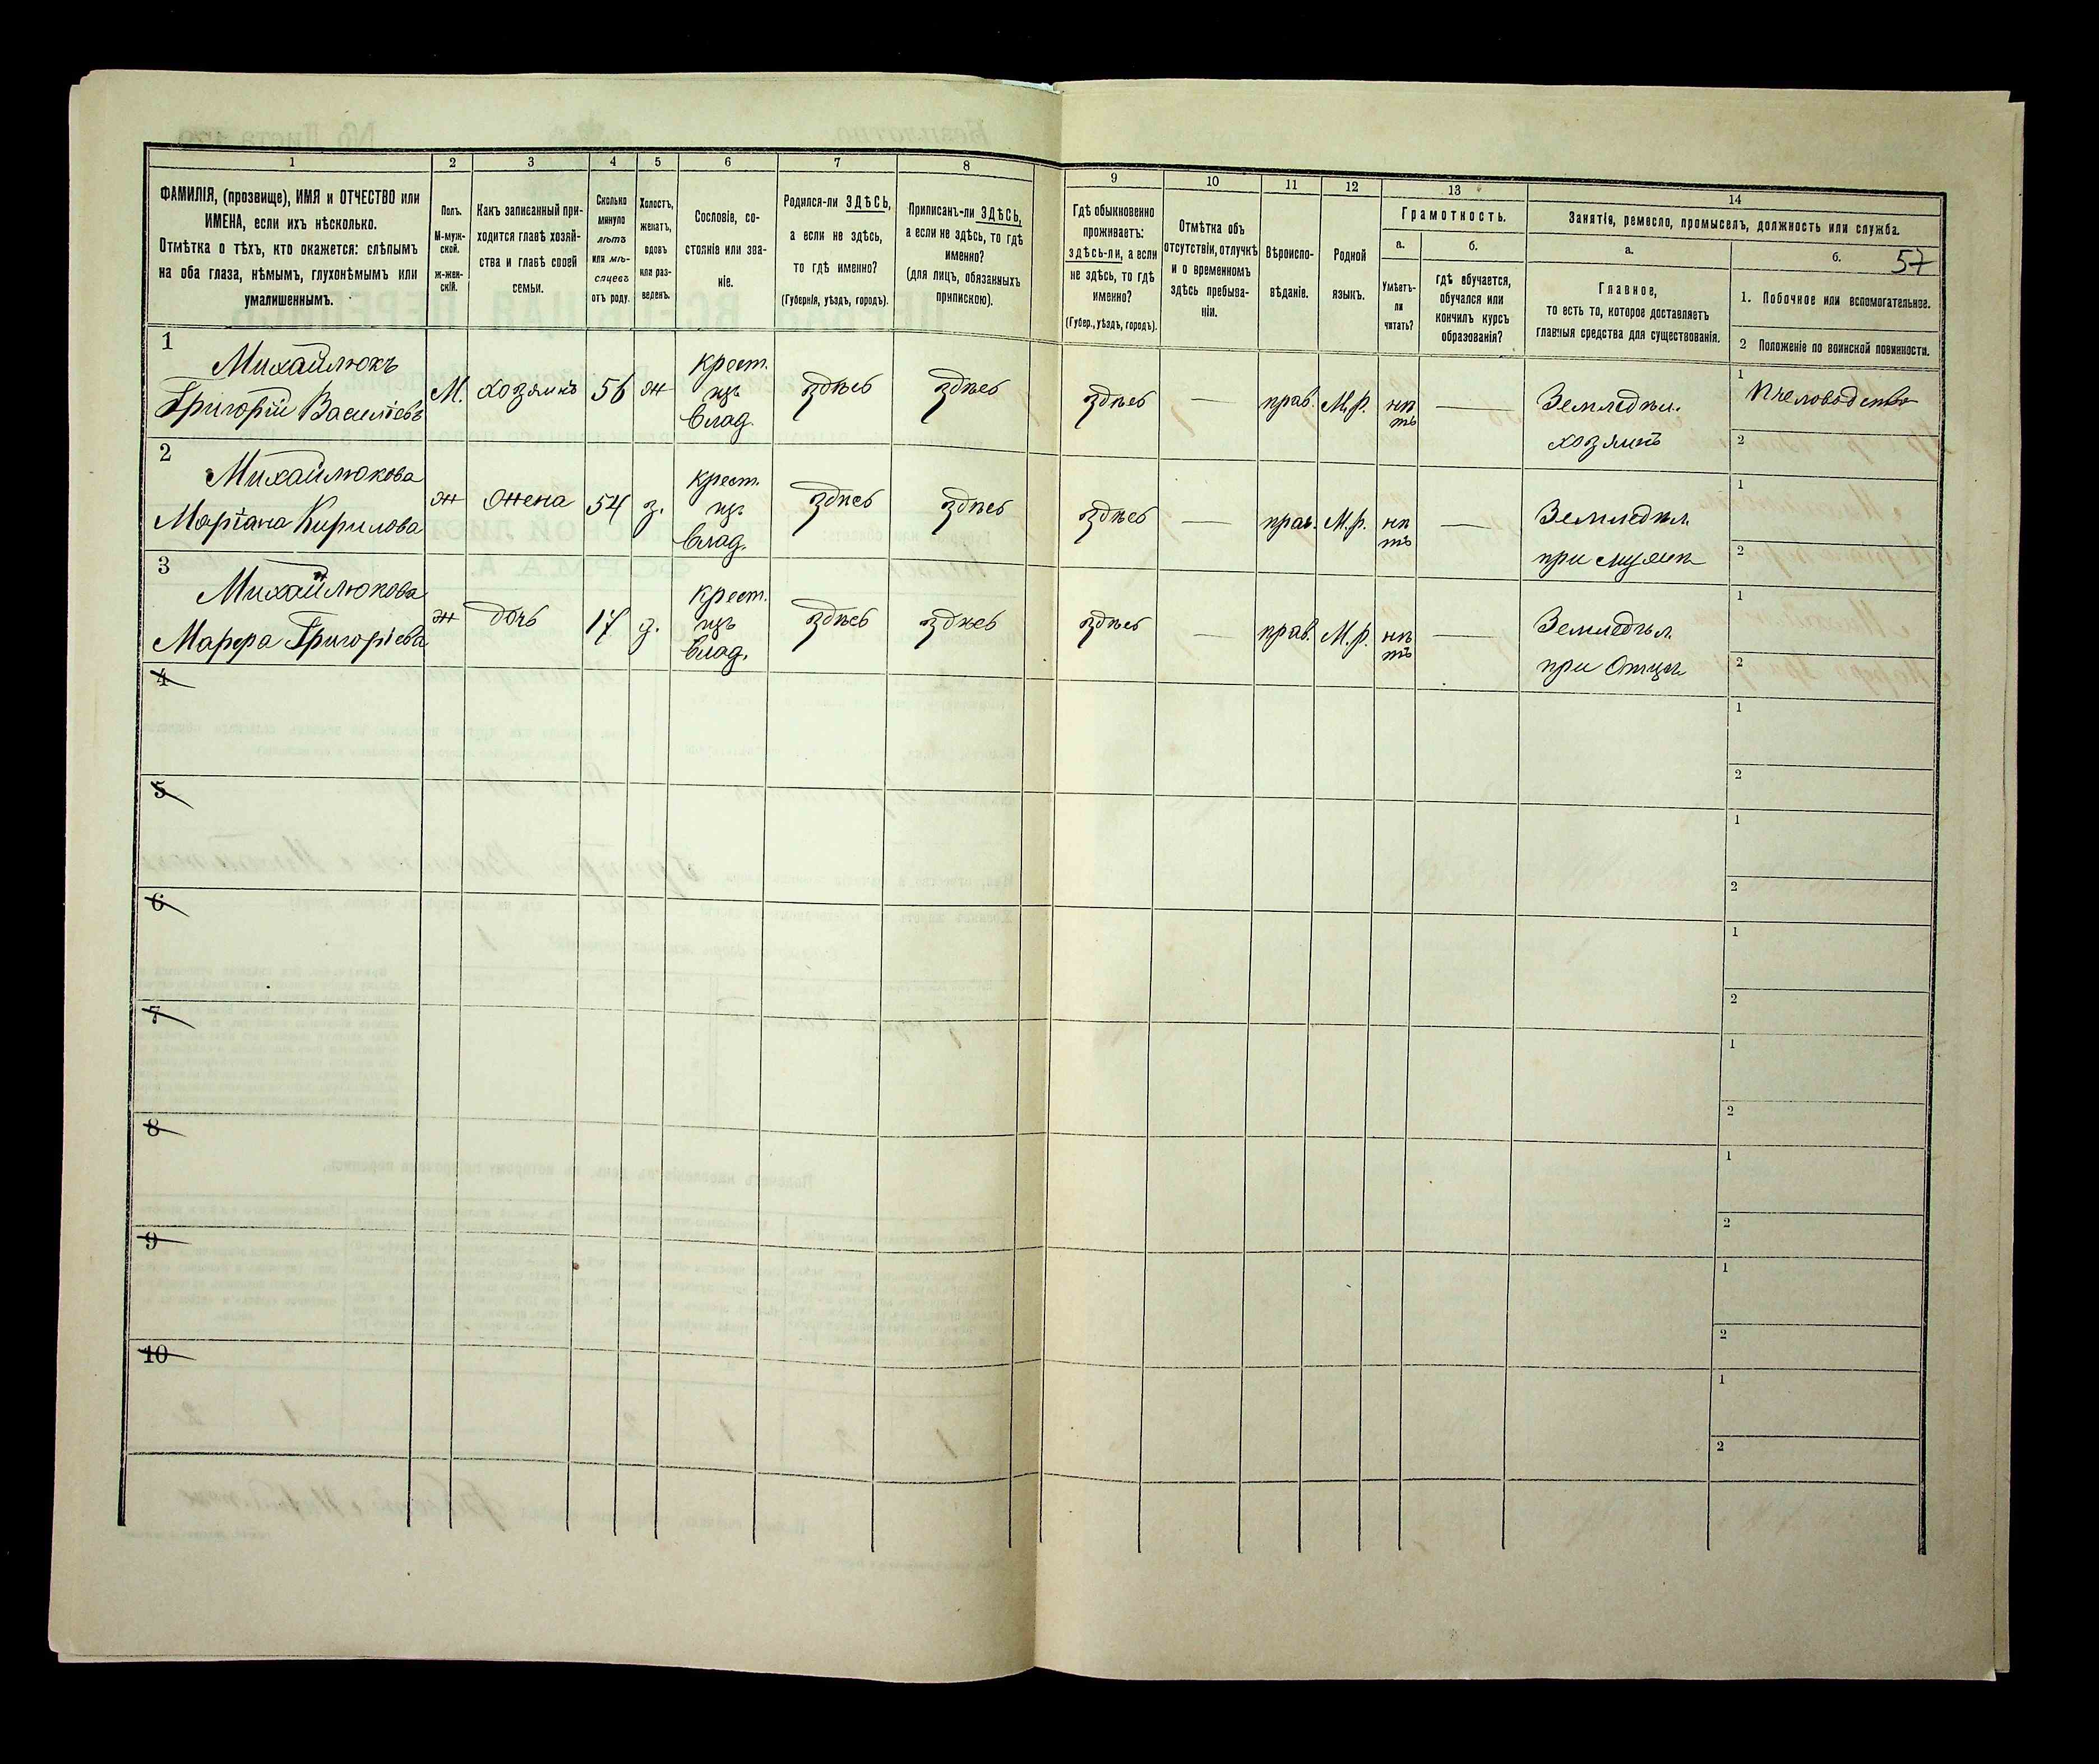 1 2 3 4 5 6 7 8 9 10 11 12 13 14
ФАМИЛІЯ, (прозвище), ИМЯ и ОТЧЕСТВО или
ИМЕНА, если ихъ нѣсколько.
Отмѣтка о тѣхъ, кто окажется: слѣпымъ
на оба глаза, нѣмымъ, глухонѣмымъ или
умалишеннымъ.
Полъ.
М-муж-
ской.
ж-жен-
скій.
Какъ записанный при-
ходится главѣ хозяй-
ства и главѣ своей
семьи.
Сколько
минуло
лѣтъ
или мѣ-
сяцевъ
отъ роду.
Холостъ,
женатъ,
вдовъ
или раз-
веденъ.
Сословіе, со-
стояніе или зва-
ніе.
Родился-ли ЗДѢСЬ,
а если не здѣсь,
то гдѣ именно?
(Губернія, уѣздъ, городъ).
Приписанъ-ли ЗДѢСЬ,
а если не здѣсь, то гдѣ
именно?
(для лицъ, обязанныхъ
припискою).
Гдѣ обыкновенно
проживаетъ:
здѣсь-ли, а если
не здѣсь, то гдѣ
именно?
(Губер., уѣздъ, городъ).
Отмѣтка объ
отсутствіи, отлучкѣ
и о временномъ
здѣсь пребыва-
ніи.
Вѣроиспо-
вѣданіе.
Родной
языкъ.
Грамотность.
а.
Умѣетъ-
ли
читать?
б.
гдѣ обучается,
обучался или
кончилъ курсъ
образованія?
Занятія, ремесло, промыселъ, должность или служба.
а.
Главное,
то есть то, которое доставляетъ
главныя средства для существованія.
б.
57
1. Побочное или вспомогательное.
2 Положеніе по воинской повинности.
1
Михайлюкъ
Григорій Василіевъ
М.
хозяинъ
56
ж
крест.
изъ
влад.
здѣсь
здѣсь
здѣсь
—
прав.
М.р.
нѣ
тъ
—
Земледѣл.
хозяинъ
1
Пчеловодство
2
2
Михайлюкова
Маріана Кирилова
ж
жена
54
з.
крест.
изъ
влад.
здѣсь
здѣсь
здѣсь
—
прав.
М.р.
нѣ
тъ
—
Земледѣл.
при мужѣ
1
2
3
Михайлюкова
Марфа Григоріева
ж
дочь
17
д.
крест.
изъ
влад.
здѣсь
здѣсь
здѣсь
—
прав.
М.р.
нѣ
тъ
—
Земледѣл.
при Отцѣ
1
2
4
1
2
5
1
2
6
1
2
7
1
2
8
1
2
9
1
2
10
1
2